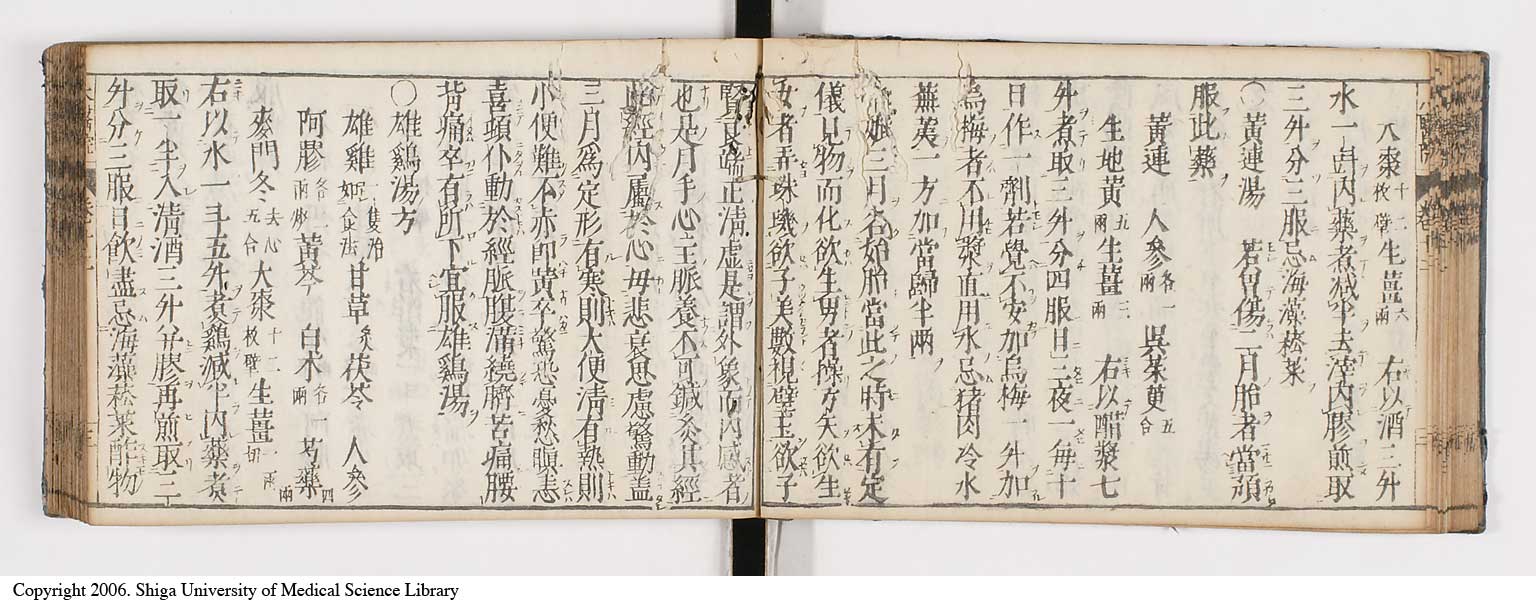 大棗十二枚擘生薑六兩 右以酒三升
水一斗内藥煮減半去滓内膠煎取
三升分三服忌海藻菘菜
○黄連湯 若曽傷二月胎者當預
服此藥
黄連 人參各一兩 呉茱萸五合
生地黄五兩生薑三兩 右以醋漿七
升煮取三升分四服日三夜一毎十
日作一劑若覺不安加烏梅一升加
烏梅者不用漿直用水忌猪肉冷水
蕪荑一方加當歸半兩
三月名始胎當此之時未有定
儀見物而化欲生男者操弓矢欲生
女者弄珠璣欲子美數視璧玉欲子
賢良端正清虚是謂外象而内感者
也是月手心主脈養不可鍼灸其經
經内屬於心毋悲哀思慮驚動蓋
三月爲定形有寒則大便清有熱則
小便難不赤即黄卒驚恐憂愁瞋恚
喜頓仆動於經脈腹滿繞臍苦痛腰
背痛卒有所下宜服雄鷄湯
○雄鷄湯方
雄雞一隻治如食法甘草炙茯苓 人參
阿膠各二兩炒黄芩 白朮各一兩 芍藥四兩
麥門冬去心五合大棗十二枚擘生薑一兩切
右以水一斗五升煮鷄減半内藥煮
取一半入清酒三升并膠再煎取三
升分三服日飲盡忌海藻菘菜酢物
Copyright 2006. Shiga University of Medical Science Library